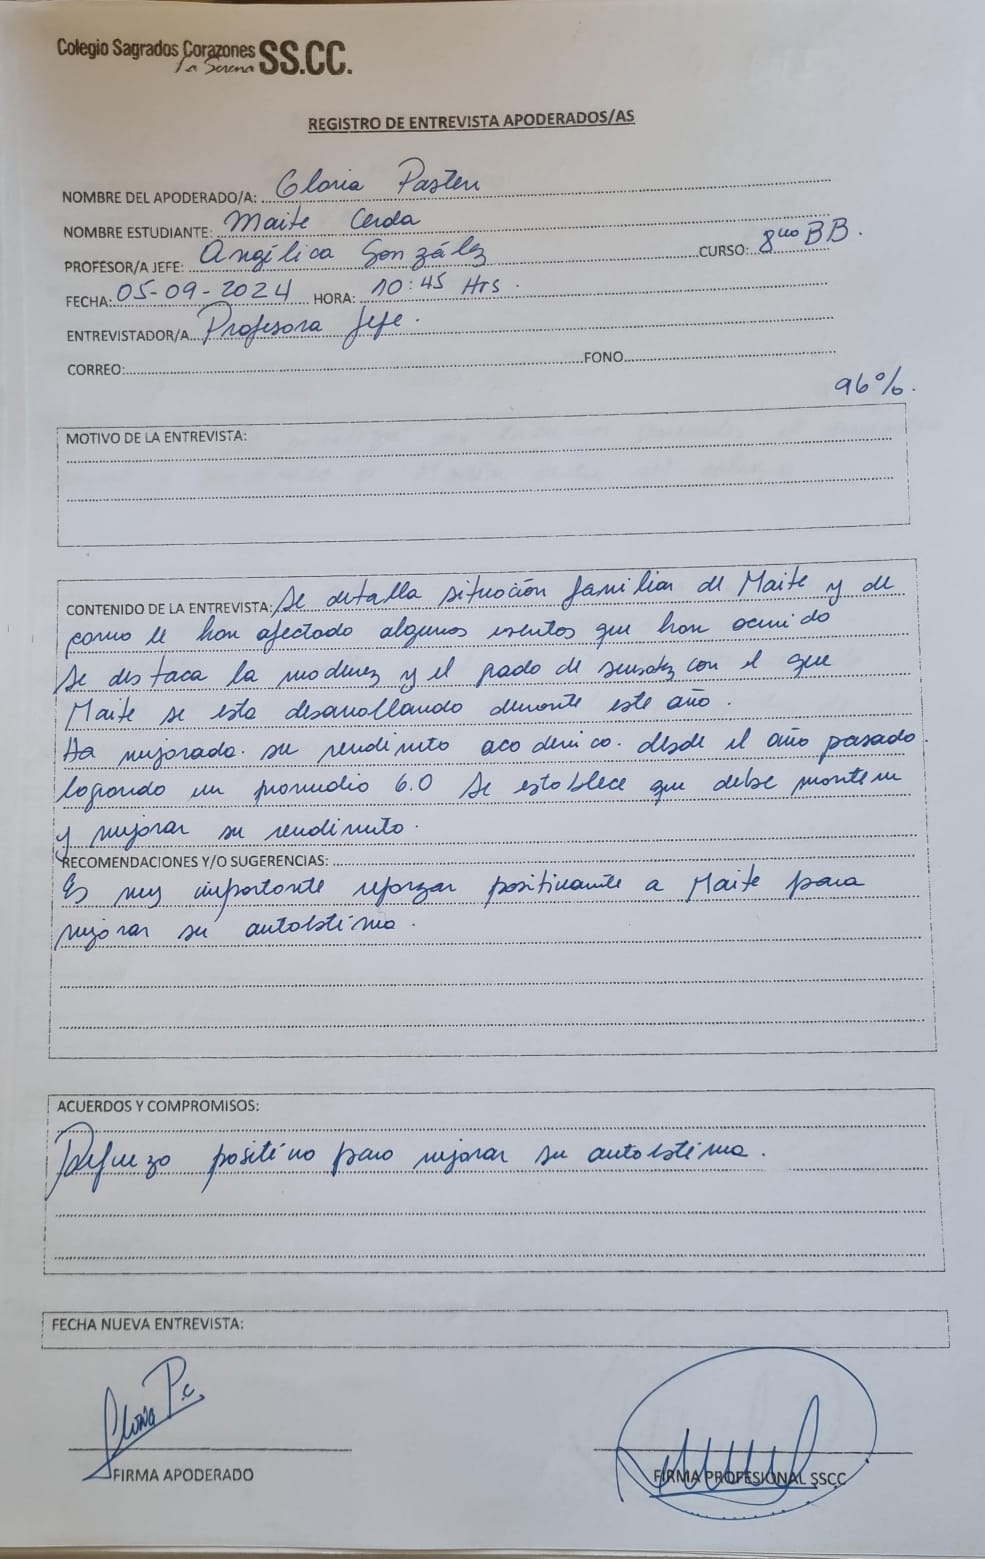 Colegio Sagrados Corazones SS.CC.
La Serena
REGISTRO DE ENTREVISTA APODERADOS/AS
NOMBRE DEL APODERADO/A: Gloria Pasten
NOMBRE ESTUDIANTE: Maite Cerda
PROFESOR/A JEFE: Angélica González CURSO: 8vo BB.
FECHA: 05-09-2024 HORA: 10:45 Hrs.
ENTREVISTADOR/A Profesora Jefe.
CORREO: FONO
96%.
MOTIVO DE LA ENTREVISTA:
CONTENIDO DE LA ENTREVISTA: Se detalla situación familiar de Maite y de
como le han afectado algunos eventos que han ocurrido
Se destaca la madurez y el grado de sensatez con el que
Maite se esta desarrollando durante este año.
Ha mejorado su rendimiento academico. desde el año pasado.
logrando un promedio 6.0 Se establece que debe mantener
y mejorar su rendimiento.
RECOMENDACIONES Y/O SUGERENCIAS:
Es muy importante reforzar positivamente a Maite para
mejorar su autoestima.
ACUERDOS Y COMPROMISOS:
Refuerzo positivo para mejorar su autoestima.
FECHA NUEVA ENTREVISTA:
Gloria P.C.
FIRMA APODERADO FIRMA PROFESIONAL SSCC